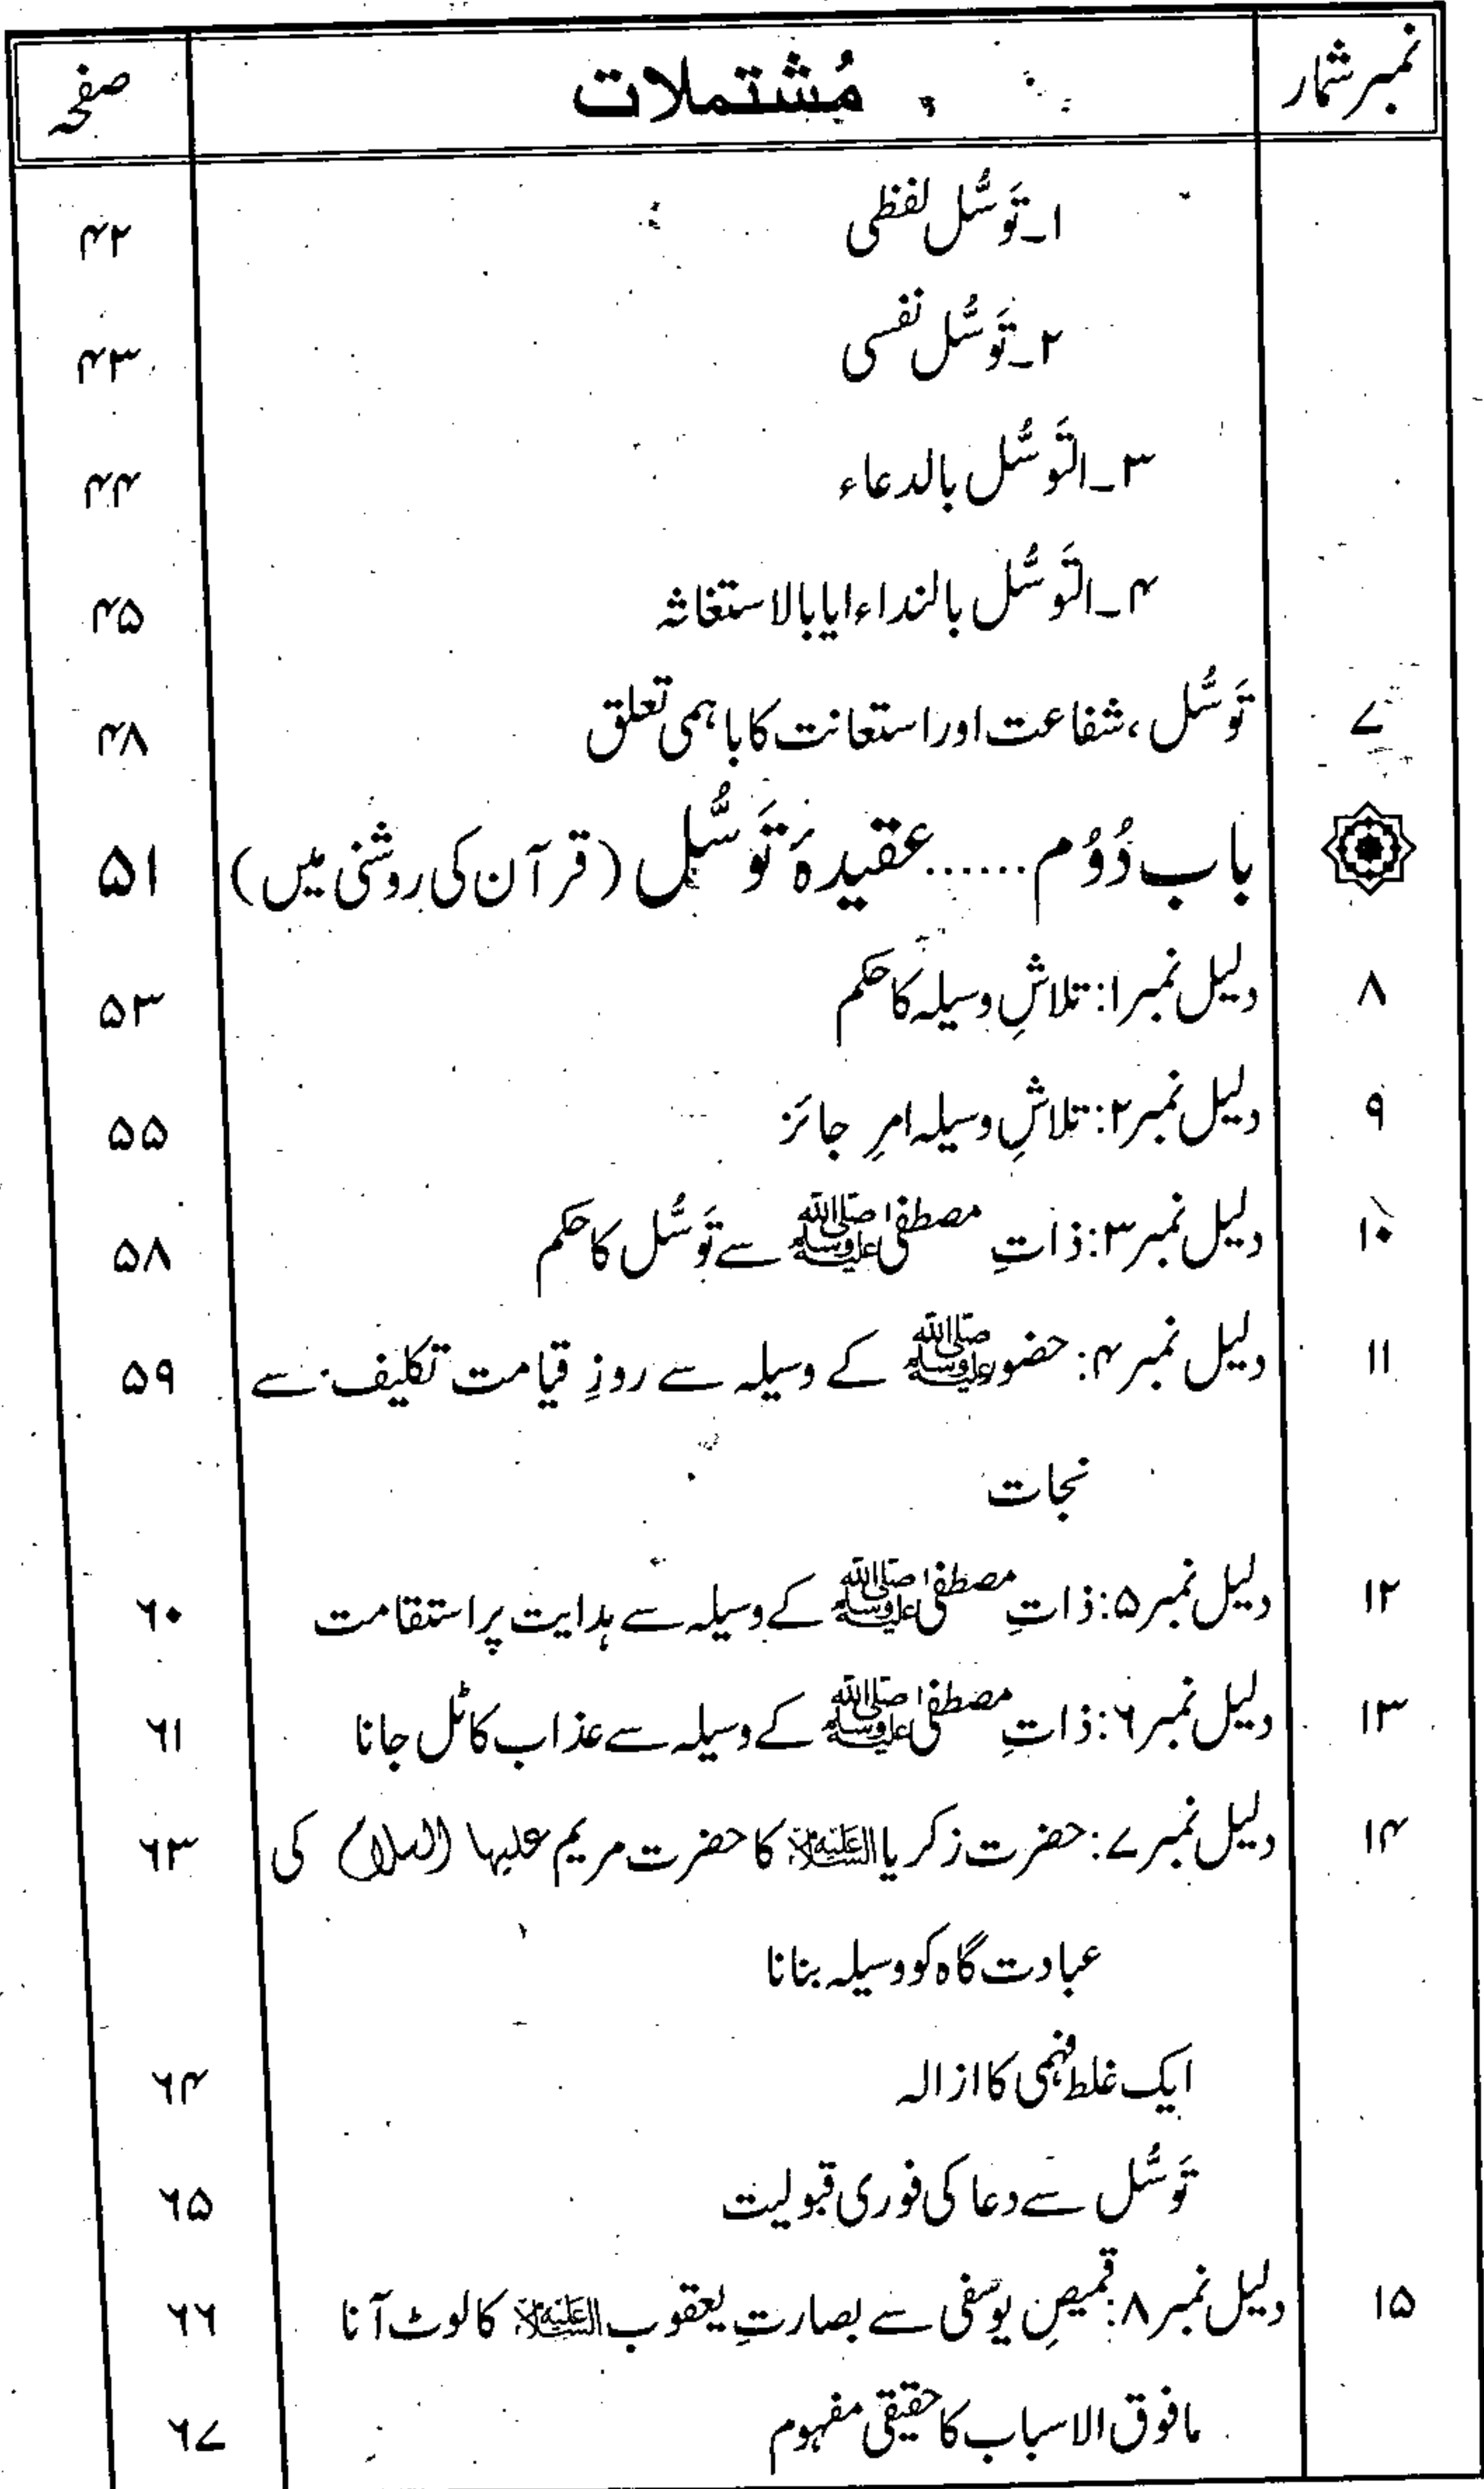 نمبر شمار مُشتملات صفحہ
۱۔تَوَسُّل لفظی ۴۲
۲۔تَوَسُّل نفسی ۴۳
۳۔التَوَسُّل بالدعاء ۴۴
۴۔التَوَسُّل بالنداء ایا بالاستغاثہ ۴۵
۷ تَوَسُّل، شفاعت اور استعانت کا باہمی تعلق ۴۸
باب دُوُم......عقیدۂ تَوَسُّل (قرآن کی روشنی میں) ۵۱
۸ دلیل نمبر ۱: تلاشِ وسیلہ کا حکم ۵۳
۹ دلیل نمبر ۲: تلاشِ وسیلہ امرِ جائز ۵۵
۱۰ دلیل نمبر ۳: ذاتِ مصطفیٰ ﷺ سے تَوَسُّل کا حکم ۵۸
۱۱ دلیل نمبر ۴: حضور ﷺ کے وسیلہ سے روزِ قیامت تکلیف سے ۵۹
نجات
۱۲ دلیل نمبر ۵: ذاتِ مصطفیٰ ﷺ کے وسیلہ سے ہدایت پر استقامت ۶۰
۱۳ دلیل نمبر ۶: ذاتِ مصطفیٰ ﷺ کے وسیلہ سے عذاب کا ٹل جانا ۶۱
۱۴ دلیل نمبر ۷: حضرت زکریا علیہ السلام کا حضرت مریم علیہا السلام کی ۶۳
عبادت گاہ کو وسیلہ بنانا
ایک غلط فہمی کا ازالہ ۶۴
تَوَسُّل سے دعا کی فوری قبولیت ۶۵
۱۵ دلیل نمبر ۸: قمیصِ یوسفی سے بصارتِ یعقوب علیہ السلام کا لوٹ آنا ۶۶
مافوق الاسباب کا حقیقی مفہوم ۶۷